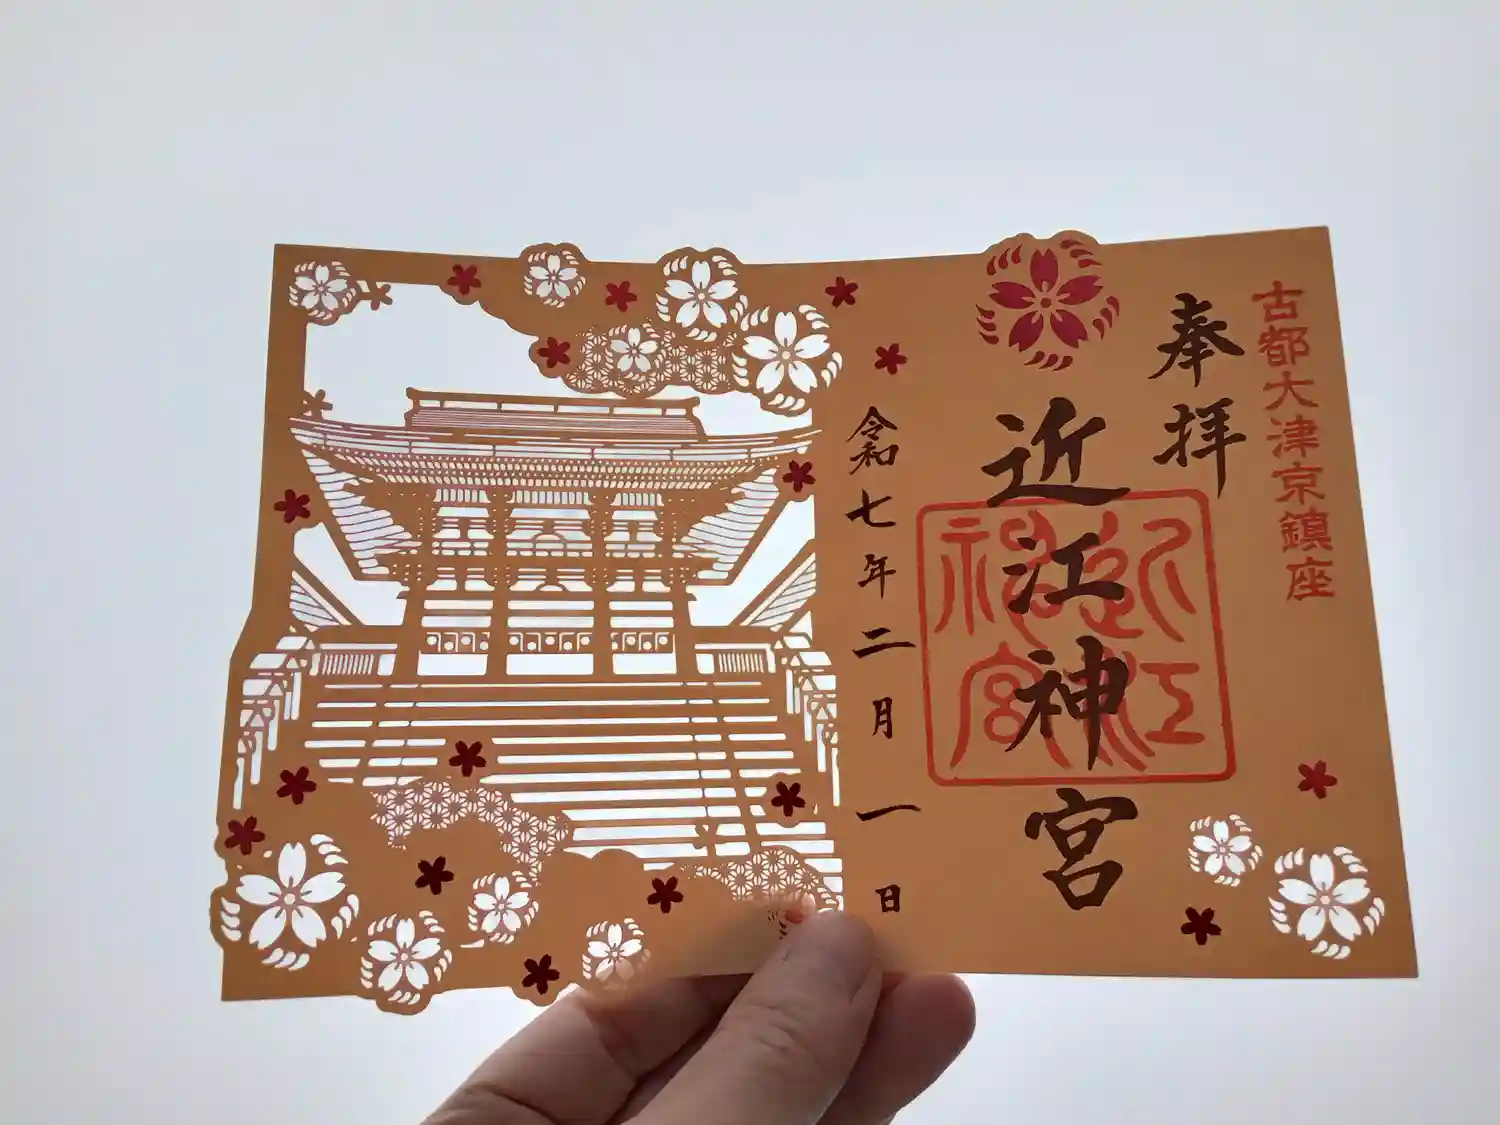 古都大津京鎮座
奉拝
近江神宮
近江
神宮
令和七年二月一日